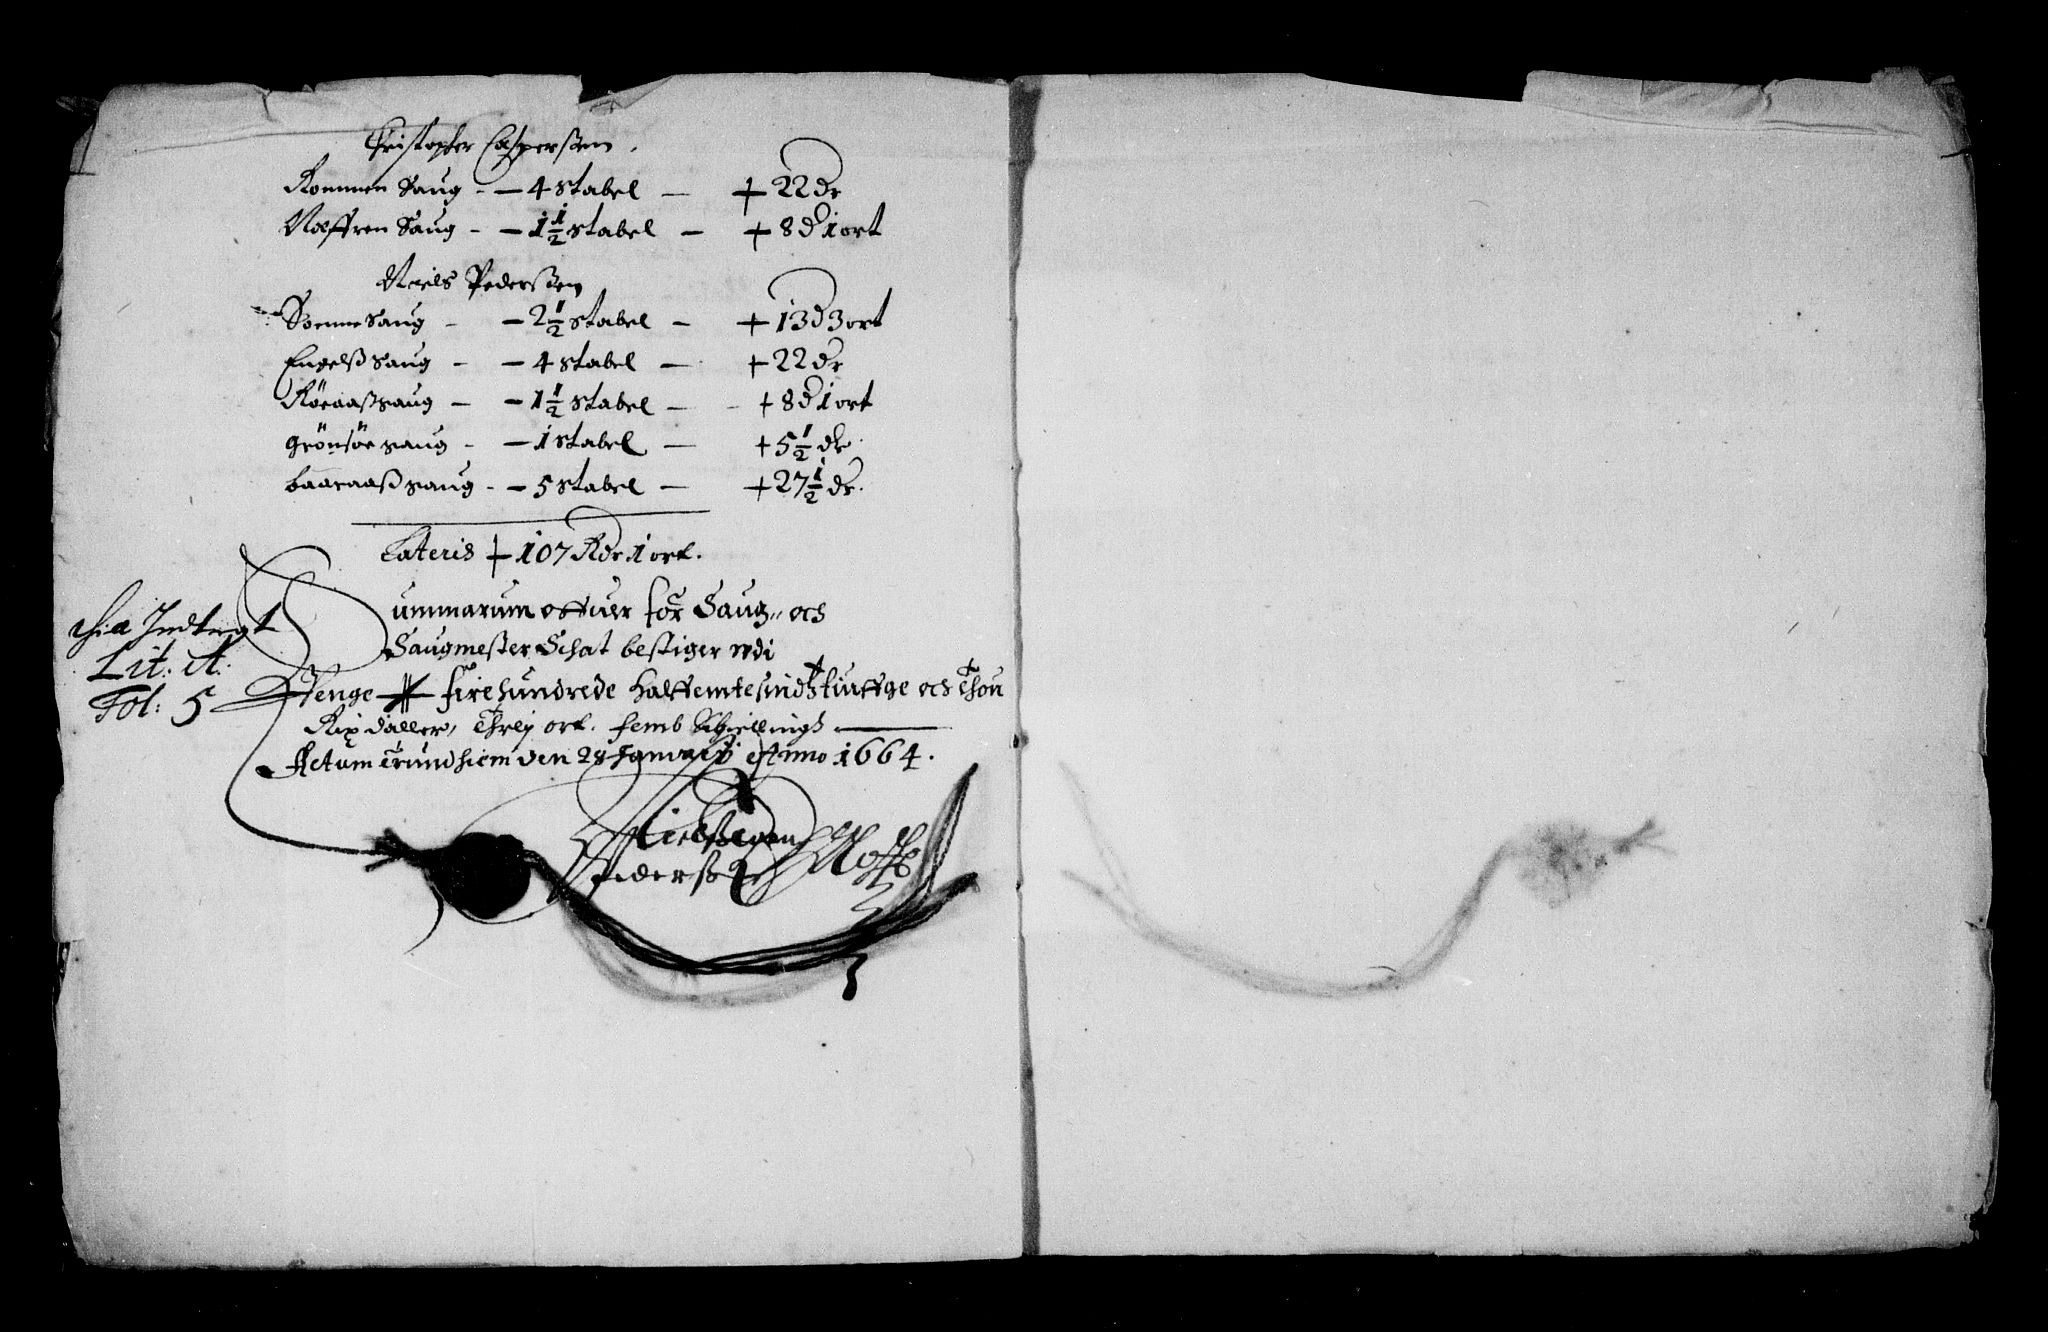 Christopher Casperßen
Rommen Saug - - 4 stabel - + 22 dr
Næffren Saug - - 1 1/2 stabel - + 8 d 1 ort
Niels Pederßen
Soenne Saug - - 2 1/2 stabel - + 13 d 3 ort
Engelß Saug - - 4 stabel - + 22 dr
Röeaaß saug - - 1 1/2 stabel - - + 8 d 1 ort
Grönsöe saug - - 1 stabel - + 5 1/2 dr.
baaraaß saug - - 5 stabel - + 27 1/2 dr.
Lateris + 107 Rdr 1 ort.
Summarum offuer for Saug,, och
Saugmester Schat bestiger udi
Penge + firehundrede halffemtesindstiuffge och Thou
Rixdaller, Threj ort. femb Schillingß
Actum Trundhiem den 28 Januarij Anno 1664.
Indtegt
Lit: A:
Fol: 5
Pederß